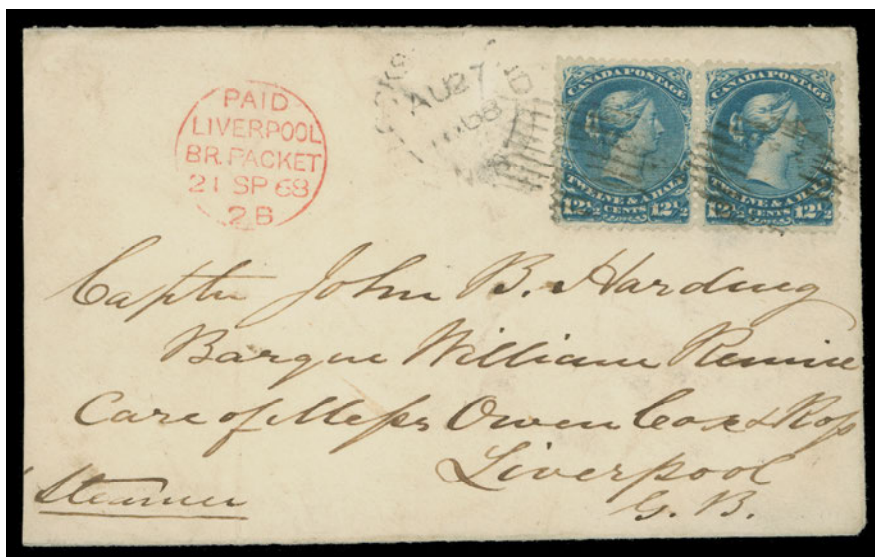 PAID
LIVERPOOL
BR. PACKET
21 SP 68
2 B
AU 27
68
CANADA POSTAGE
TWELVE & A HALF
12½ CENTS 12½
CANADA POSTAGE
TWELVE & A HALF
12½ CENTS 12½
Captn John B. Harding
Barque William
Care of Messrs Owen Cox & Ross
Liverpool
G. B.
Steamer